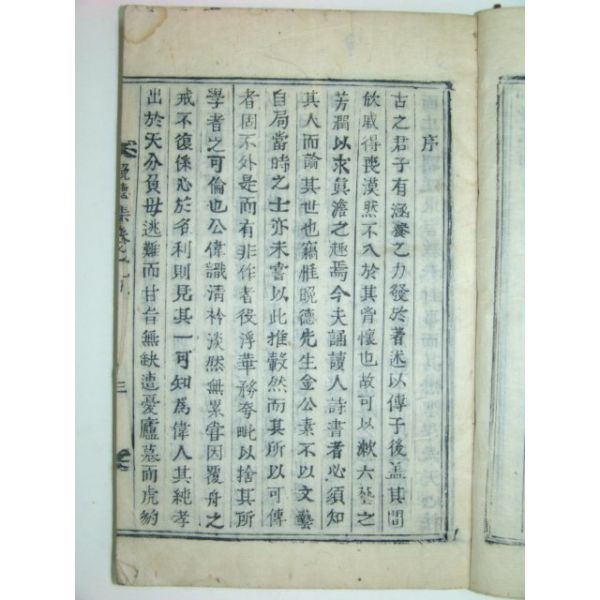 序
古之君子有涵養之力發於著述以傳于後盖其間
欣戚得喪漠然不入於其胷懷也故可以漱六藝之
芳潤以求眞澹之趣焉今夫誦讀人詩書者必須知
其人而論其世也竊惟晩德先生金公素不以文藝
自局當時之士亦未嘗以此推轂然而其所以可傳
者固不外是而有非作者役浮華務夸毗以捨其所
學者之可倫也公偉識淸衿淡然無累甞因覆舟之
戒不復係心於名利則見其一可知爲偉人其純孝
出於天分負母逃難而甘旨無缺遭憂廬墓而虎豹
晩德集卷之一 序
三